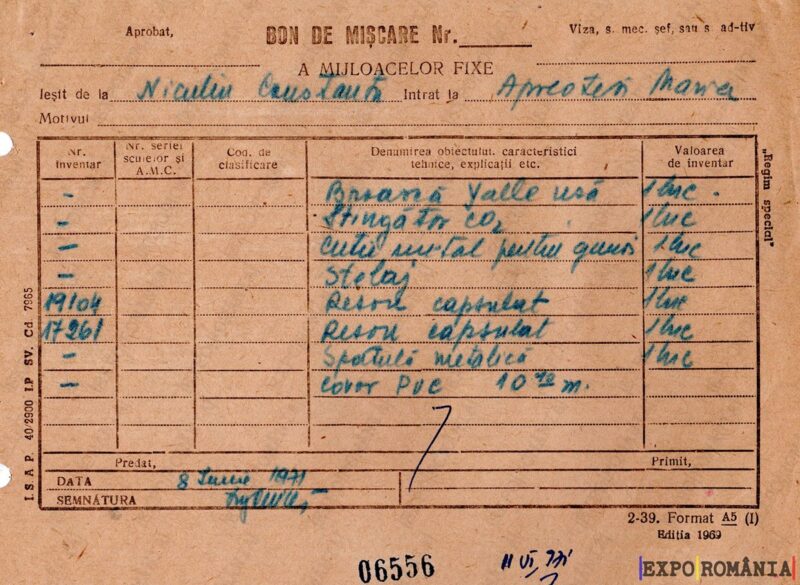 Aprobat,
BON DE MIȘCARE Nr.
Viza, s. mec. șef, sau s. ad-tiv
A MIJLOACELOR FIXE
Ieșit de la Niculiu Constanța Intrat la Apreotesi Maria
Motivul
Nr. inventar
Nr. seriei sculelor și A.M.C.
Cod. de clasificare
Denumirea obiectului, caracteristici tehnice, explicații etc.
Valoarea de inventar
- Broască Yalle usă 1 buc.
- Stingător CO2 1 buc
- Cutie metal pentru gunoi 1 buc
- Stelaj 1 buc
19104 Resou capsulat 1 buc
17261 Resou capsulat 1 buc
- Spatulă metalică 1 buc
- Covor PVC 10 m.
Predat,
Primit,
DATA 8 Iunie 1971
SEMNĂTURA
2-39. Format A5 (I)
Ediția 1969
06556
11 VI 971
"Regim special"
I.S.A.P. 40/2900 I.P SV. Cd. 7965
EXPO ROMÂNIA